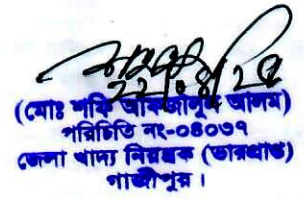 ২২/০৪/২৫
(মোঃ শফি আফজালুল আলম)
পরিচিতি নং-০৪০৩৭
জেলা খাদ্য নিয়ন্ত্রক (ভারপ্রাপ্ত)
গাজীপুর।